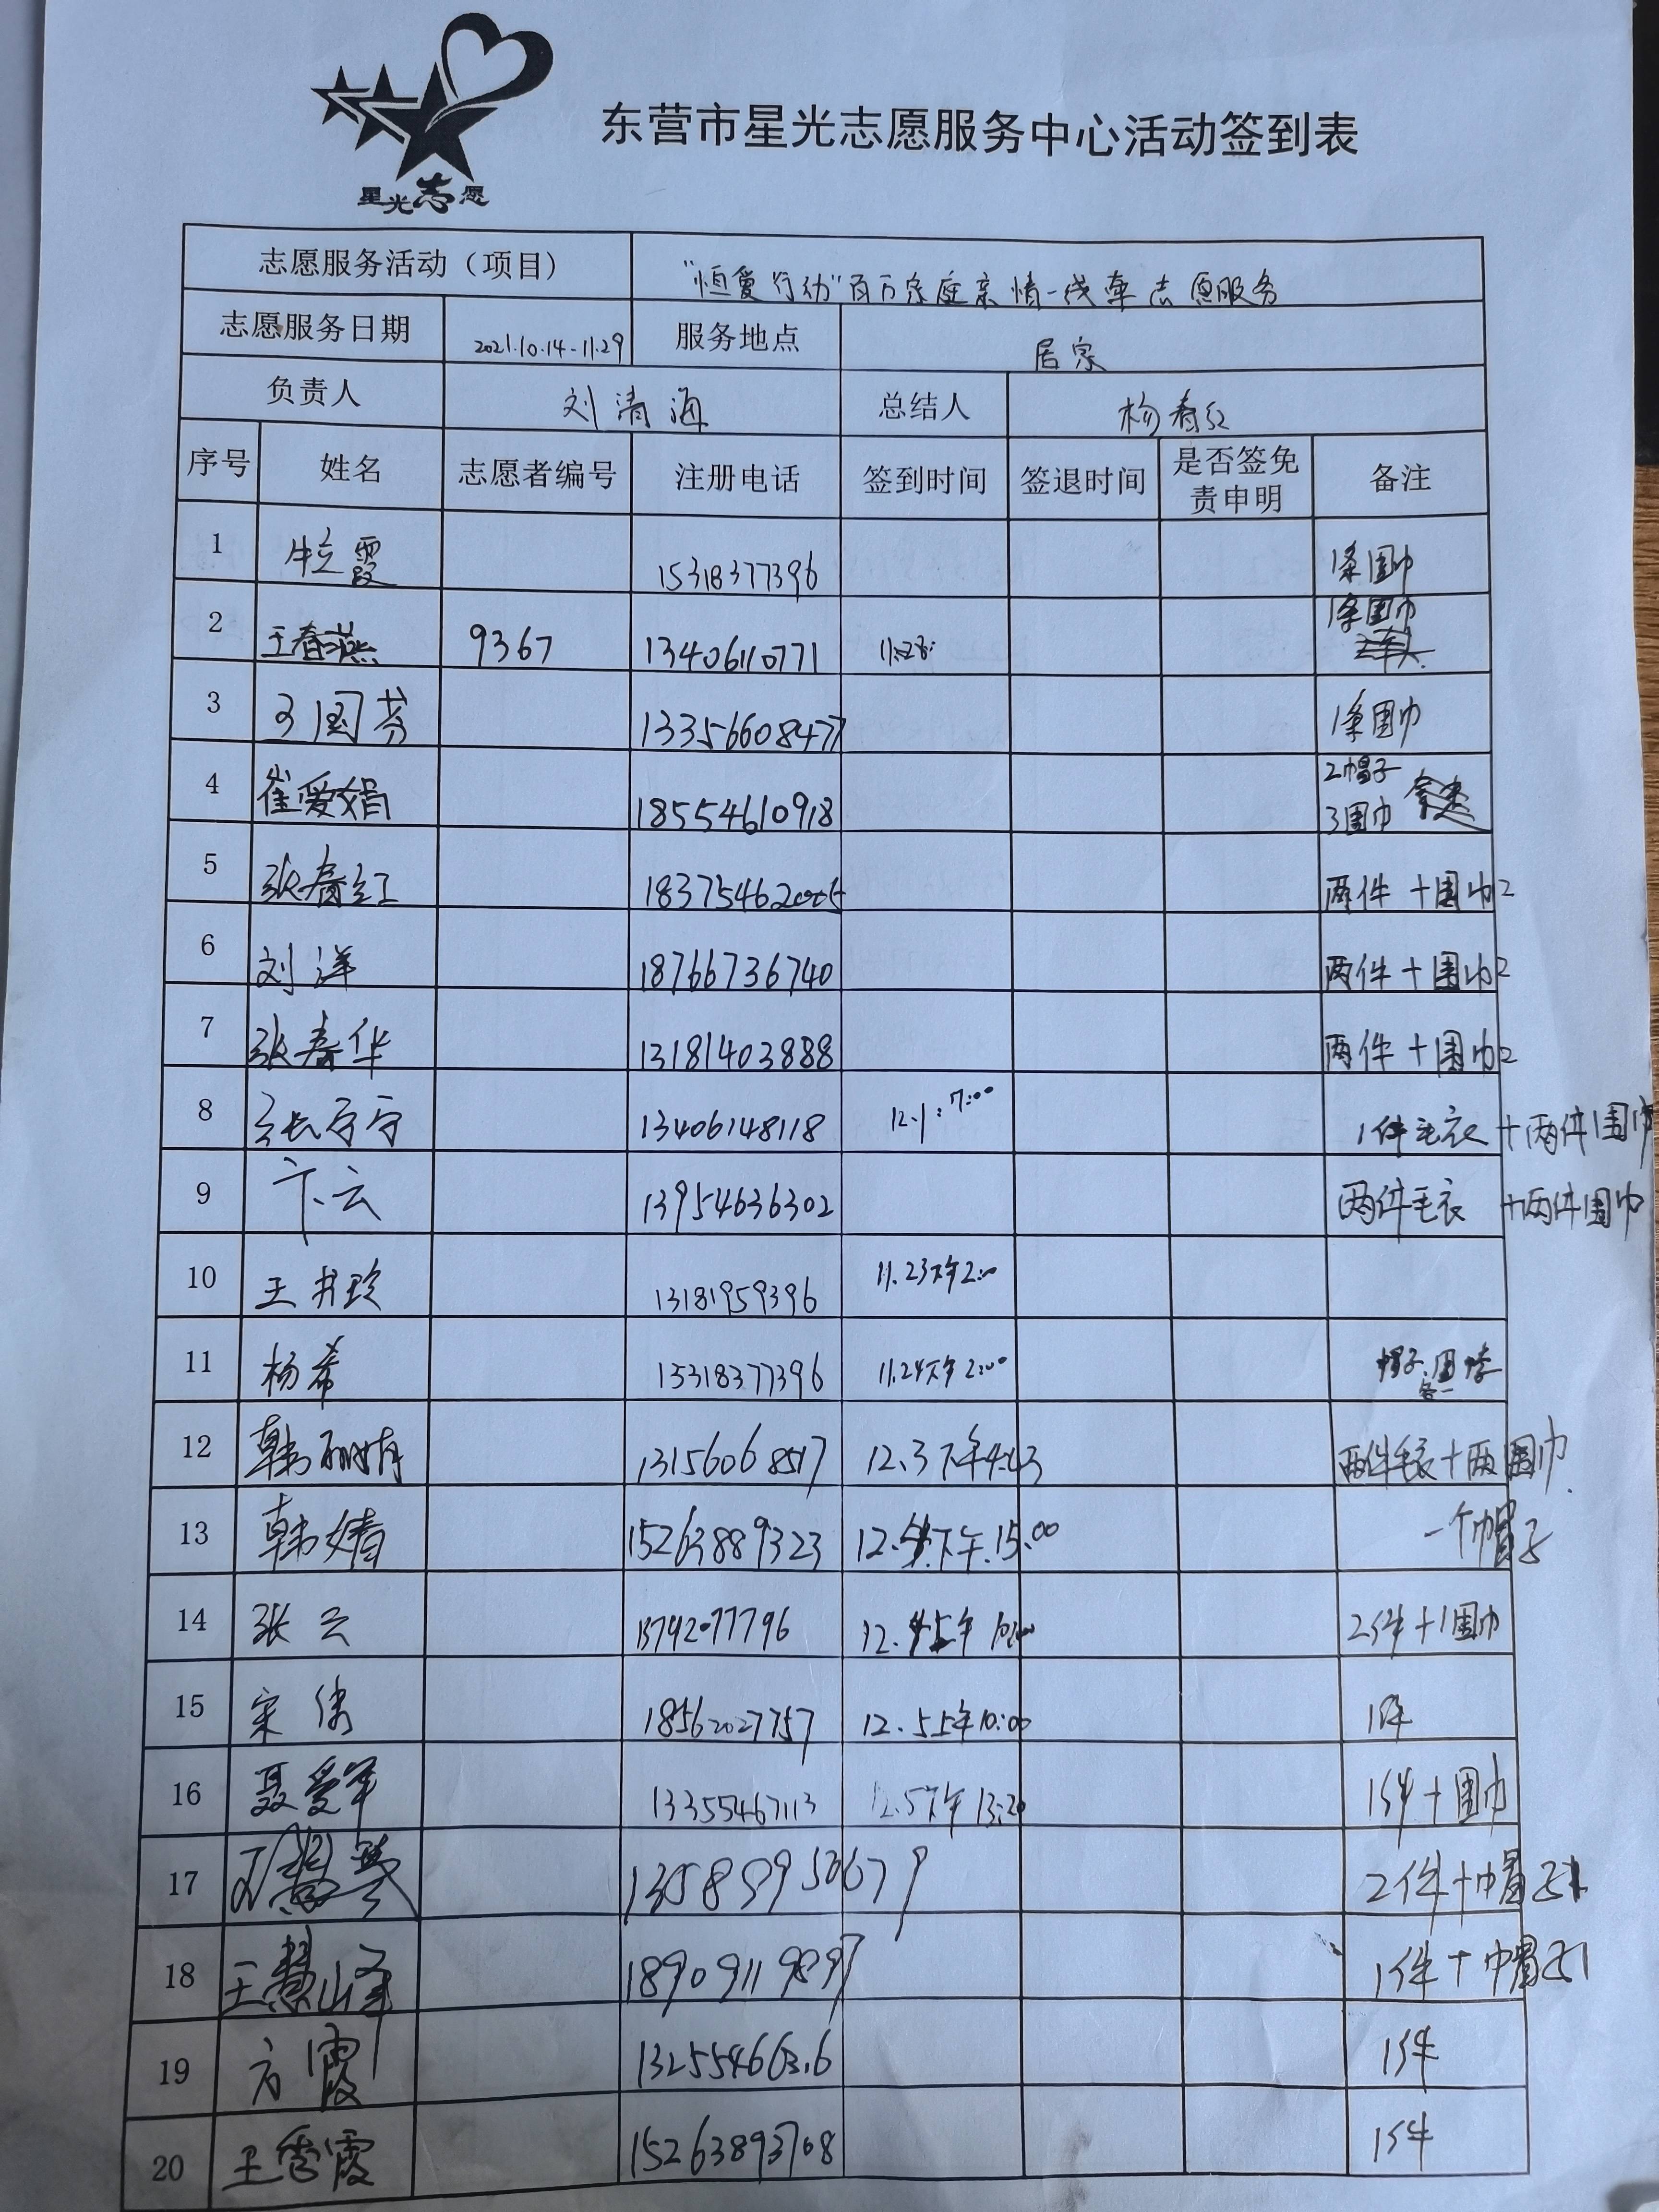 星光志愿
东营市星光志愿服务中心活动签到表
志愿服务活动（项目） "恒爱行动"百万家庭亲情一线牵志愿服务
志愿服务日期 2021.10.14-11.29 服务地点 居家
负责人 刘清海 总结人 杨春红
序号 姓名 志愿者编号 注册电话 签到时间 签退时间 是否签免责申明 备注
1 牛立霞 15318377396 1条围巾
2 王春燕 9367 13406110771 11.28 1条围巾
3 王国芬 13356608477 1条围巾
4 崔爱娟 18554610918 2帽子 3围巾
5 张春红 1837546 两件+围巾2
6 刘洋 18766736740 两件+围巾2
7 张春华 13181403888 两件+围巾2
8 张宁宁 13406148118 12.1:7:00 1件毛衣+两件围巾
9 卞云 13954636302 两件毛衣+两件围巾
10 王书珍 13181959396 11.23下午2:00
11 杨希 15318377396 11.24下午2:00 帽子.围巾各一
12 韩丽娟 13156068517 12.3下午4:43 两件毛衣+两围巾.
13 韩婧 15263889323 12.4下午.15:00 一个帽子
14 张云 13792077796 12.5上午10:00 2件+1围巾
15 宋倩 18562027757 12.5上午10:00 1件
16 聂爱军 13355467113 12.5下午13:20 1件+围巾
17 13589950679 2件+帽子1
18 王慧峰 18909119897 1件+帽子1
19 方霞 1件
20 王雪霞 15263893708 1件